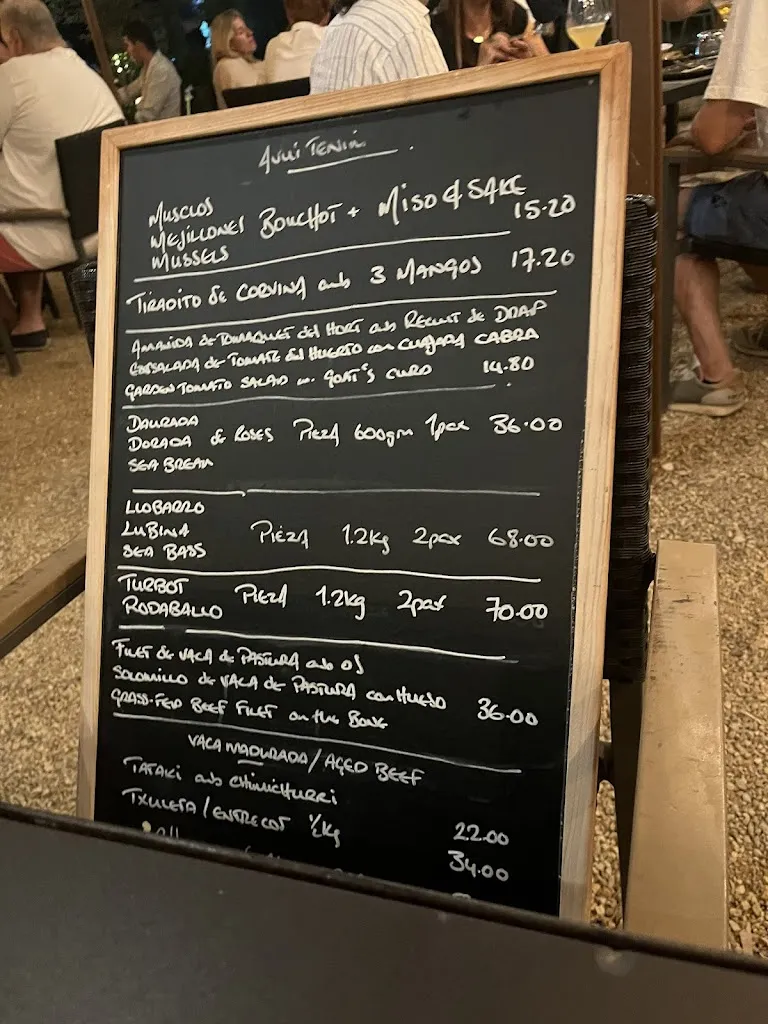 Avui Tenim
MUSCLOS
MEJILLONES BOUCHOT + MISO & SAKE
MUSSELS 15.20
TIRADITO de CORVINA amb 3 MANGOS 17.20
AMANIDA de TOMAQUET del HORT amb RECUIT de DRAP
ENSALADA de TOMATE del HUERTO con CUAJADA CABRA
GARDEN TOMATO SALAD w. GOAT'S CURD 14.80
DAURADA
DORADA de ROSES PIEZA 600gm 1pax 36.00
SEA BREAM
LLOBARRO
LUBINA PIEZA 1.2kg 2pax 68.00
SEA BASS
TURBOT
RODABALLO PIEZA 1.2kg 2pax 70.00
FILET de VACA de PASTURA amb OS
SOLOMILLO de VACA de PASTURA con HUESO 36.00
GRASS-FED BEEF FILET on the BONE
VACA MADURADA / AGED BEEF
TATAKI amb CHIMICHURRI 22.00
TXULETA / ENTRECOT ½kg 34.00